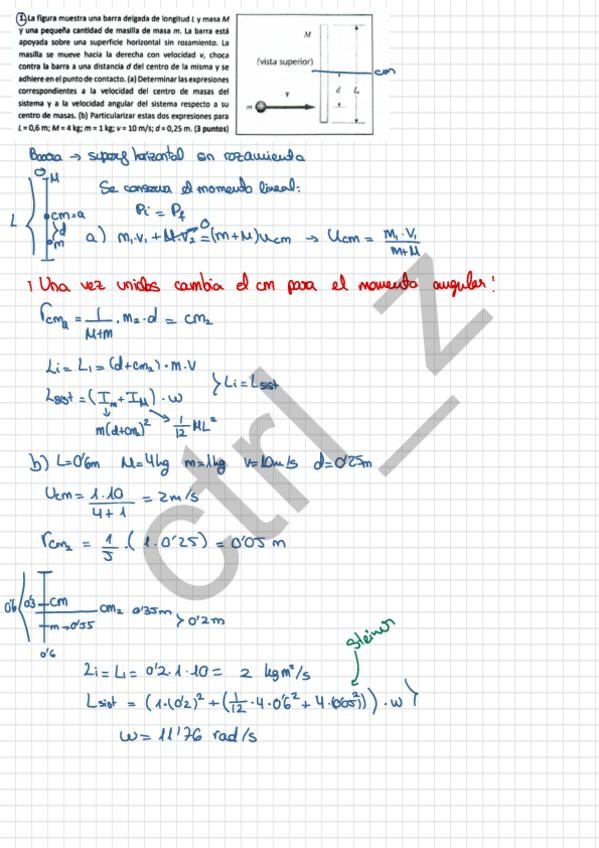 1. La figura muestra una barra delgada de longitud L y masa M
y una pequeña cantidad de masilla de masa m. La barra está
apoyada sobre una superficie horizontal sin rozamiento. La
masilla se mueve hacia la derecha con velocidad v, choca
contra la barra a una distancia d del centro de la misma y se
adhiere en el punto de contacto. (a) Determinar las expresiones
correspondientes a la velocidad del centro de masas del
sistema y a la velocidad angular del sistema respecto a su
centro de masas. (b) Particularizar estas dos expresiones para
L = 0,6 m; M = 4 kg; m = 1 kg; v = 10 m/s; d = 0,25 m. (3 puntos)
M
(vista superior)
cm
d L
v
m
Barra → superf horizontal sin rozamiento
0 M
Se conserva el momento lineal:
L
cm=a
Pi = Pf
d
m
a) m₁·v₁ + M·v₂ = (m+M)Ucm → Ucm = m₁·v₁ / m+M
0
¡Una vez unidos cambia el cm para el momento angular!
rcm₂ = 1/M+m · m₂·d = cm₂
Li = L₁ = (d+cm₂)·m·v
} Li = Lsist
Lsist = (Im + IM)·w
m(d+cm₂)² 1/12 ML²
b) L=0'6m M=4kg m=1kg v=10m/s d=0'25m
Ucm = 1·10 / 4+1 = 2m/s
rcm₂ = 1/5 · (1·0'25) = 0'05 m
0'6 0'3 cm
cm₂ 0'35m > 0'2m
m→0'55
0'6
steiner
Li = L₁ = 0'2·1·10 = 2 kg m²/s
Lsist = (1·(0'2)² + (1/12·4·0'6² + 4·0'05²))·w }
w = 11'76 rad/s
ctrl_z